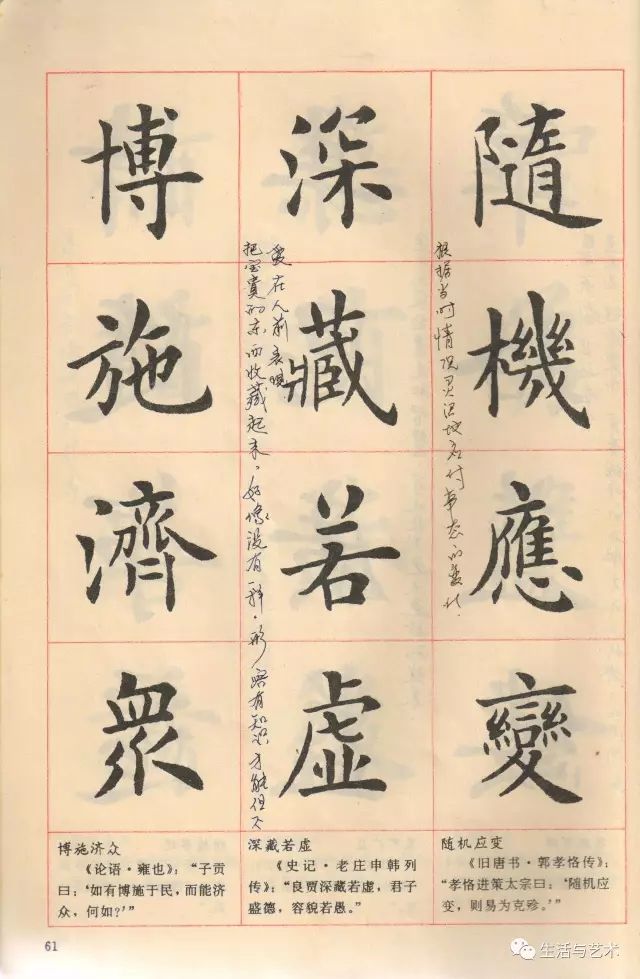 隨機應變
根据当时情况灵活地应付事态的变化.
深藏若虛
把宝贵的东西收藏起来。好像没有一样.形容有知识才能但不
爱在人前表现.
博施濟衆
随机应变
《旧唐书·郭孝恪传》：
“孝恪进策太宗曰：‘随机应
变，则易为克殄。’”
深藏若虚
《史记·老庄申韩列
传》：“良贾深藏若虚，君子
盛德，容貌若愚。”
博施济众
《论语·雍也》：“子贡
曰：‘如有博施于民，而能济
众，何如？’”
61
生活与艺术